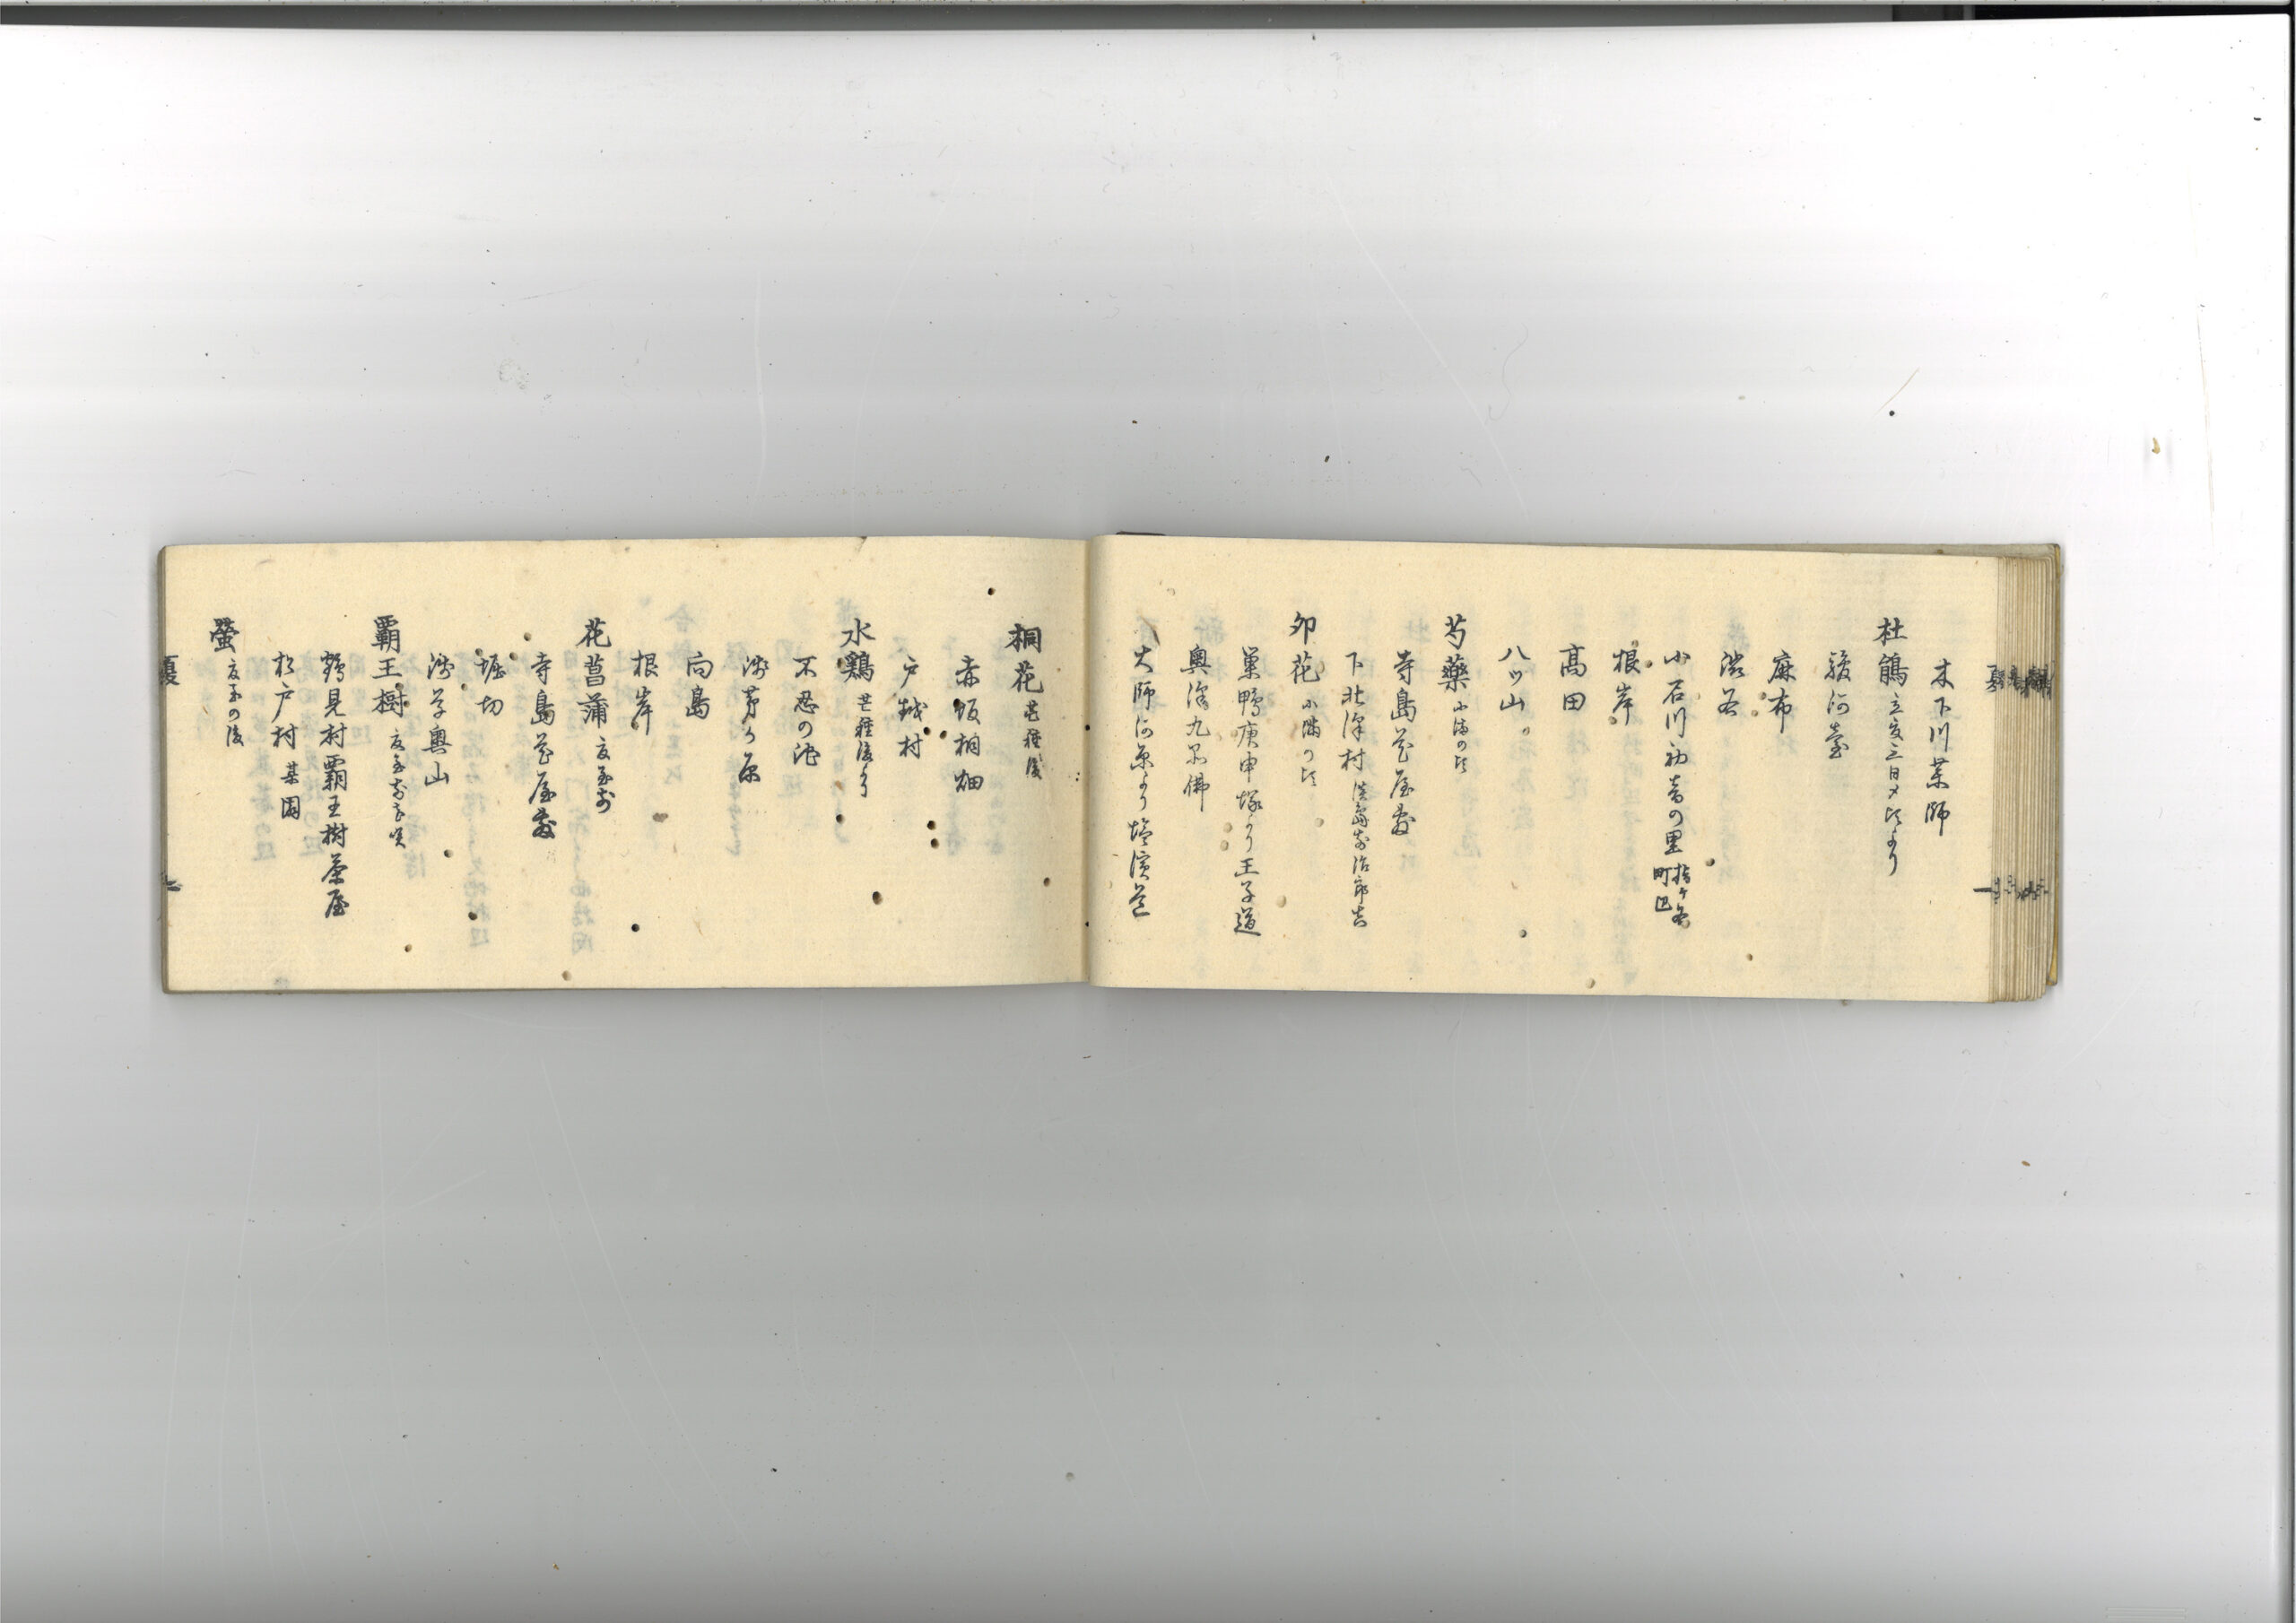 木下川薬師
杜鵑 立夏三日メ頃より
駿河臺
麻布
澁谷
小石川初音の里 指ケ谷町辺
根岸
高田
八ツ山
芍藥 小満の頃
寺島花屋敷
下北澤村
卯花 小満の頃
巣鴨庚申塚より王子道
奥澤九品佛
大師河原より塩濱道
桐花 芒種後
赤坂桐畑
戸越村
水鶏 芒種後より
不忍の池
浅茅ケ原
向島
根岸
花菖蒲 夏至前
寺島花屋敷
堀切
浅草奥山
覇王樹
鶴見村覇王樹茶屋
松戸村 某園
螢 夏至の後
夏